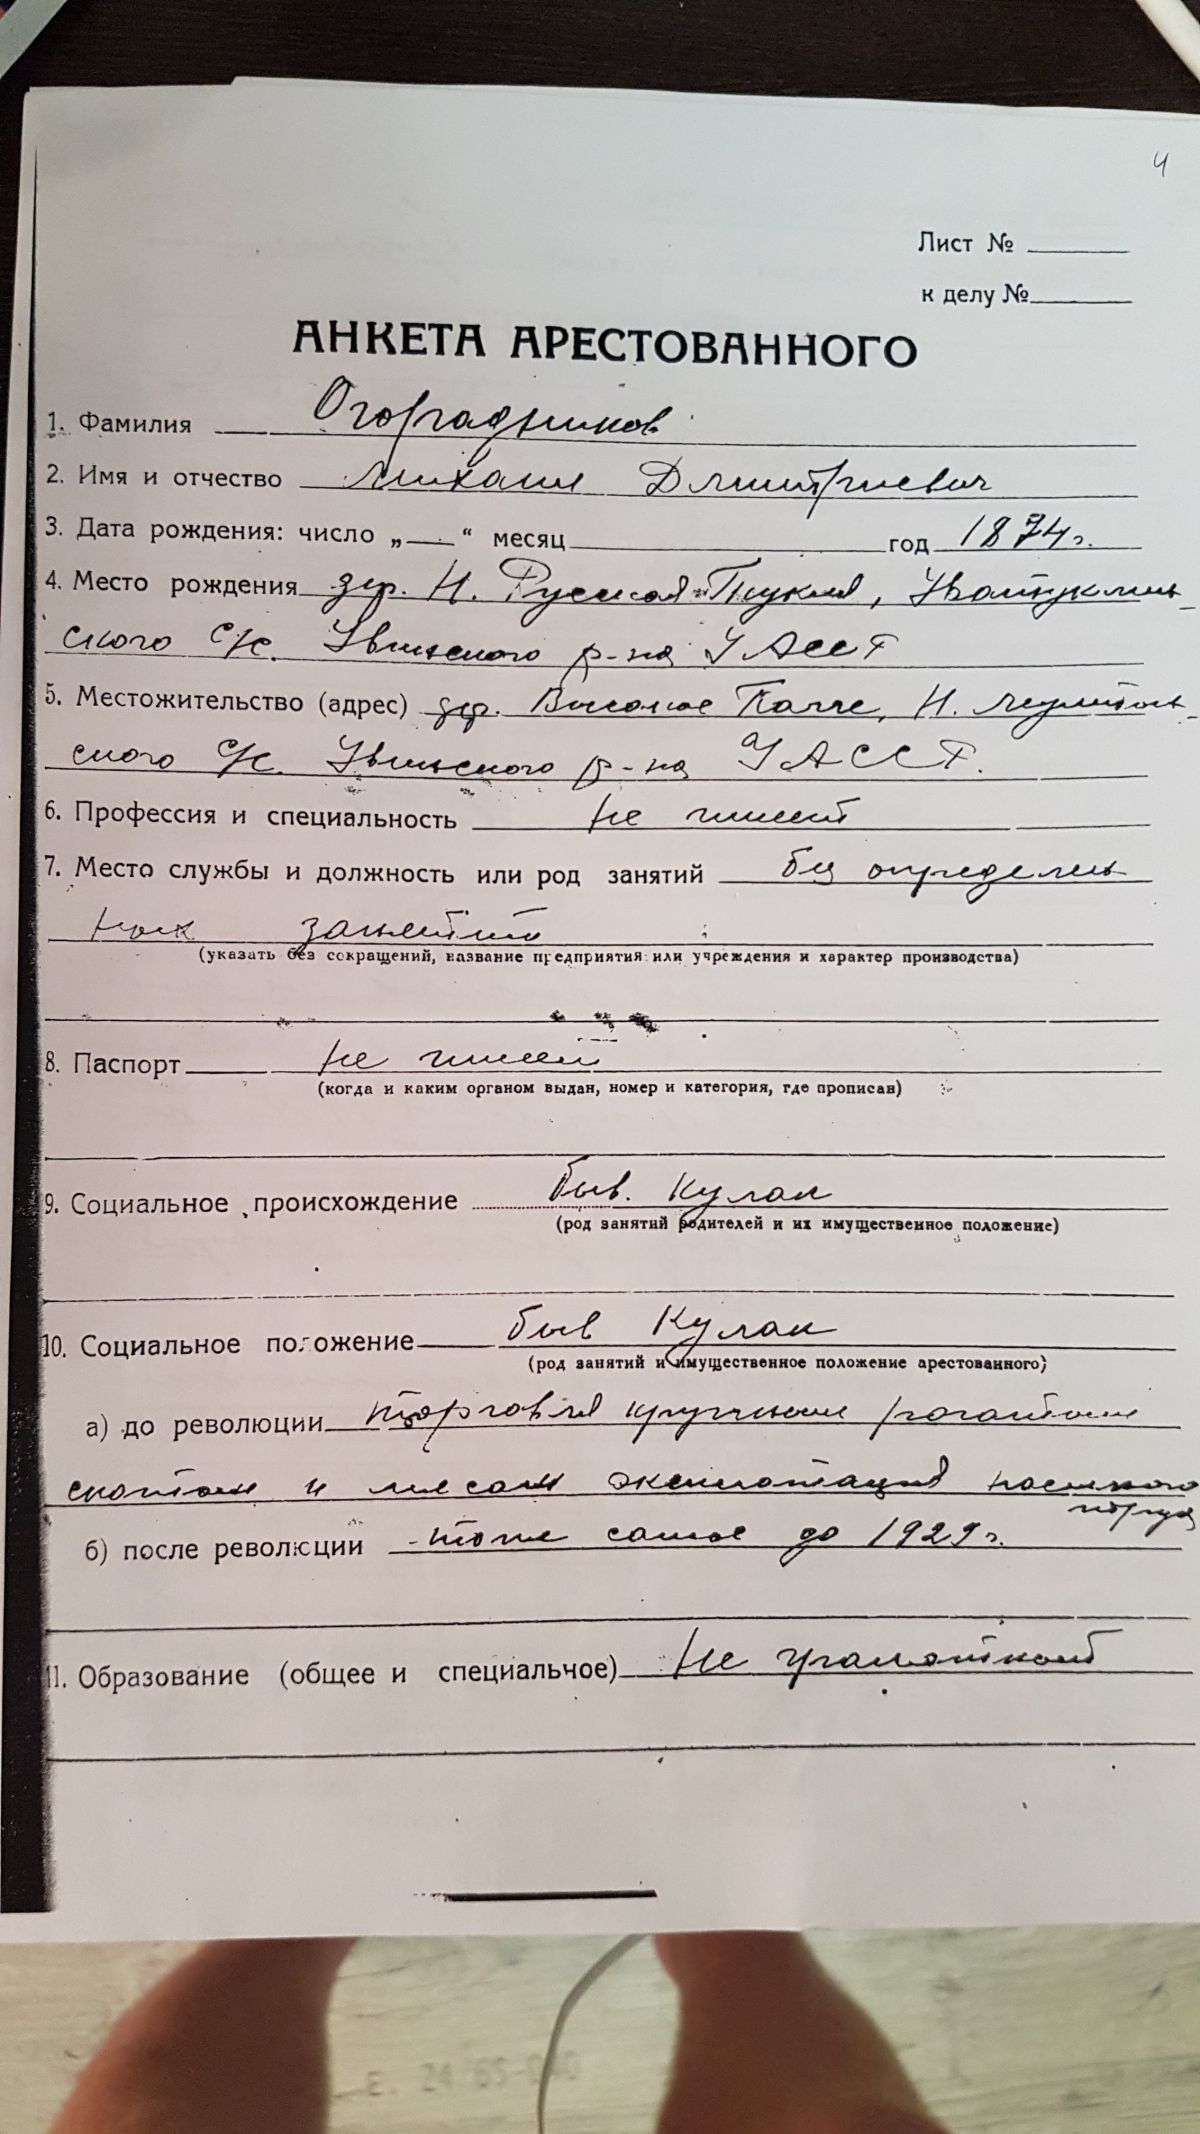 4
Лист № ______
к делу № ______
АНКЕТА АРЕСТОВАННОГО
1. Фамилия Огородников
2. Имя и отчество Михаил Дмитриевич
3. Дата рождения: число „___“ месяц ______ год 1874 г.
4. Место рождения дер. Н. Русская
ского с/с. Увинского р-на УАССР
5. Местожительство (адрес) дер. Н.
ского с/с. Увинского р-на УАССР.
6. Профессия и специальность не имеет
7. Место службы и должность или род занятий без определен
ных занятий
(указать без сокращений, название предприятия или учреждения и характер производства)
8. Паспорт не имеет
(когда и каким органом выдан, номер и категория, где прописан)
9. Социальное происхождение быв. Кулак
(род занятий родителей и их имущественное положение)
10. Социальное положение быв Кулак
(род занятий и имущественное положение арестованного)
а) до революции торговля крупным рогатым
скотом и мясом эксплотация наемного
труда
б) после революции тоже самое до 1929 г.
11. Образование (общее и специальное) Не грамотной
Е. 24 65-